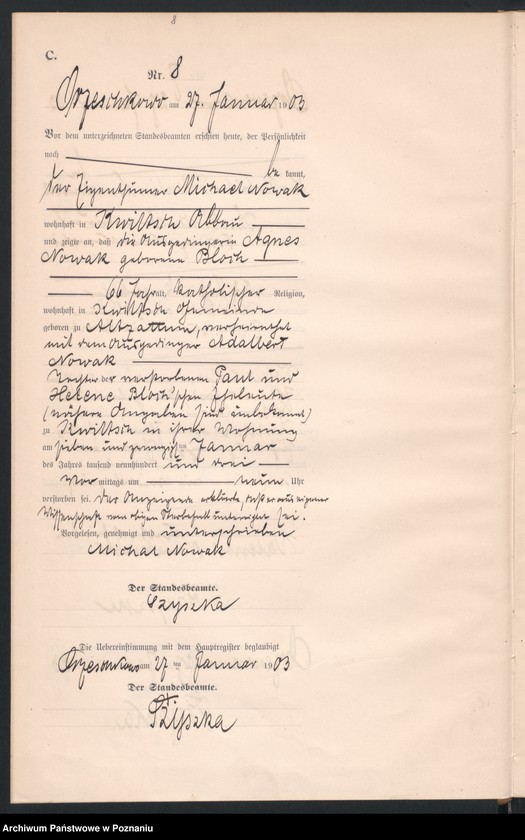 8
C.
Nr. 8
Orzeschkowo am 27. Januar 1903
Vor dem unterzeichneten Standesbeamten erschien heute, der Persönlichkeit
nach be kannt,
der Eigenthümer Michael Nowak
wohnhaft in Kwiltsch Abbau
und zeigte an, daß die Ausgedingerin Agnes
Nowak geborene Bloch
66 Jahr alt, katholischer Religion,
wohnhaft in Kwiltsch Gemeinde
geboren zu Altzattum, verheirathet
mit dem Ausgedinger Adalbert
Nowak
Tochter der verstorbenen Paul und
Helene Bloch'schen Eheleute
(nähere Angaben sind unbekannt)
zu Kwiltsch in ihrer Wohnung
am sieben und zwanzigsten Januar
des Jahres tausend neunhundert und drei
Vor mittags um neun Uhr
verstorben sei. Der Anzeigende erklärte, daß er aus eigener
Wissenschaft vom obigen Sterbefall unterrichtet sei.
Vorgelesen, genehmigt und unterschrieben
Michal Nowak
Der Standesbeamte.
Szyszka
Die Uebereinstimmung mit dem Hauptregister beglaubigt
Orzeschkowo am 27 ten Januar 1903
Der Standesbeamte.
Szyszka
Archiwum Państwowe w Poznaniu